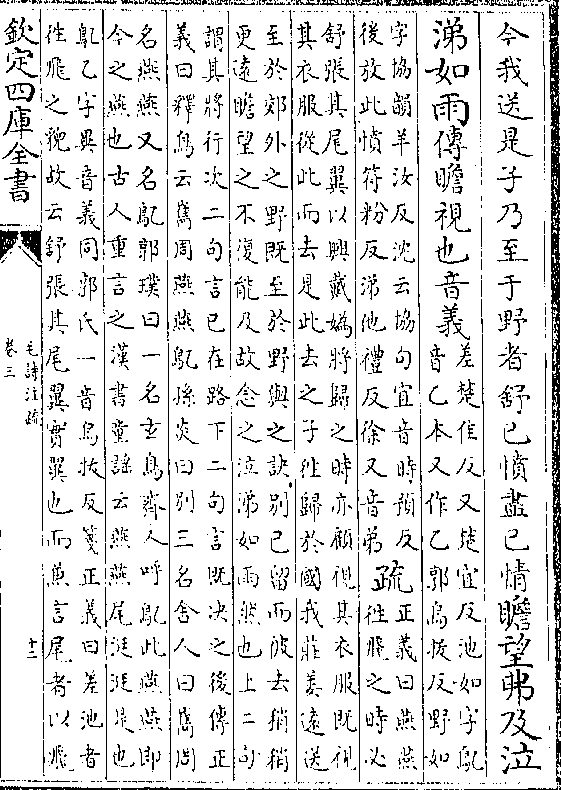 今我送是子乃至于野者舒已憤盡已情瞻望弗及泣
涕如雨傳瞻視也音義差楚佳反又楚宜反池如字鳦
音乙本又作乙郭烏拔反野如
字協韻羊汝反沈云協句宜音時預反
後放此憤符粉反涕他禮反徐又音弟
疏正義曰燕燕
往飛之時必
舒張其尾翼以興戴嬀將歸之時亦顧視其衣服既視
其衣服從此而去是此去之子往歸於國我莊姜遠送
至於郊外之野既至於野與之訣别已留而彼去稍稍
更遠瞻望之不復能及故念之泣涕如雨然也上二句
謂其將行次二句言已在路下二句言既决之後傳正
義曰釋鳥云巂周燕燕鳦孫炎曰别三名舍人曰巂周
名燕燕又名鳦郭璞曰一名玄鳥齊人呼鳦此燕燕即
今之燕也古人重言之漢書童謡云燕燕尾涎涎是也
鳦乙字異音義同郭氏一音烏拔反箋正義曰差池者
往飛之貌故云舒張其尾翼實翼也而兼言尾者以飛
欽定四庫全書
毛詩注疏
卷三
十二